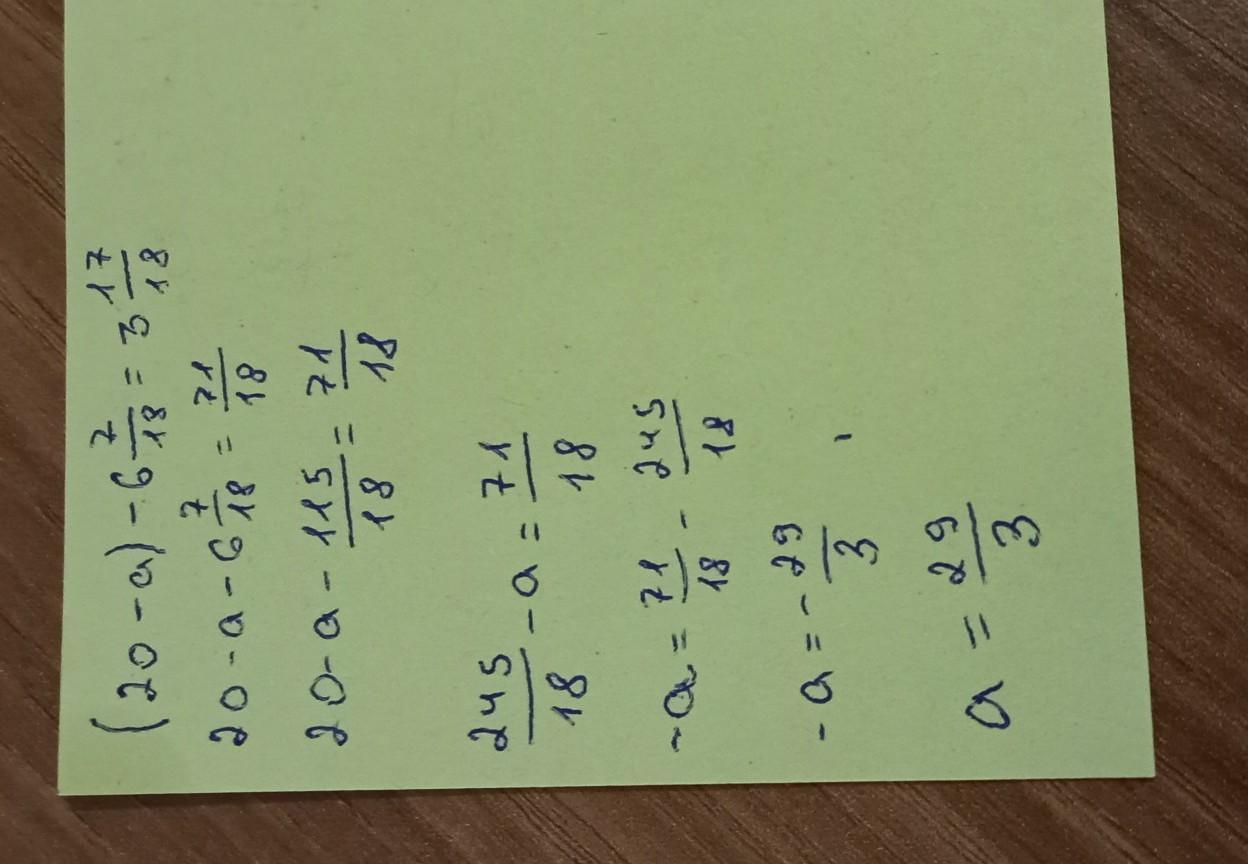 (20 - a) - 6 7/18 = 3 17/18
20 - a - 6 7/18 = 71/18
20 - a - 115/18 = 71/18
245/18 - a = 71/18
-a = 71/18 - 245/18
-a = - 29/3
a = 29/3